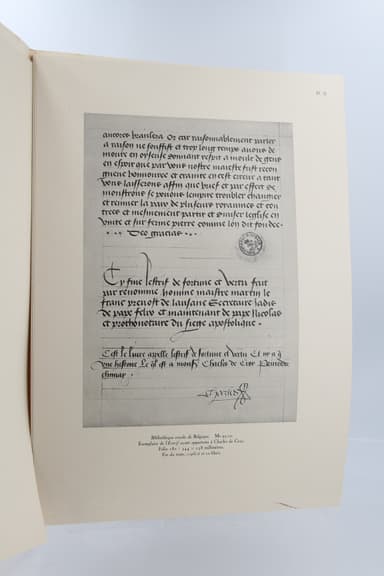 encores branslera Or car raisonnablement parler
a raison ne souffist et trop long temps avons de
moure en oyseuse donnant respit a moult de gens
en espoir que par vous nostre maistre fust recon
gneue honnouree et crainte en cest erreur a tant
vous laisserons affin que brief et par effect de
monstrons se povons lempire troubler changier
et ruiner la paix de plusieurs royaumes et con
trees et mesmement partir et diviser leglise en
unite et sur ferme pierre comme lon dit fondee
Deo gracias
Cy fine lestrif de fortune et vertu fait
par renomme homme maistre martin le
franc prevost de lausane Secretaire jadis
de pape felix et maintenant de pape Nicolas
et prothonotaire du siege apostolique
C'est le livre apelle lestrif de fortune et vertu Et ny a q
une histoire Le ql est a monsr Charles de Croy Prince de
chimay
Charles
Bibliothèque royale de Belgique. Ms 9510
Exemplaire de l'Estrif ayant appartenu à Charles de Croy.
Folio 180 : 344 × 238 millimètres.